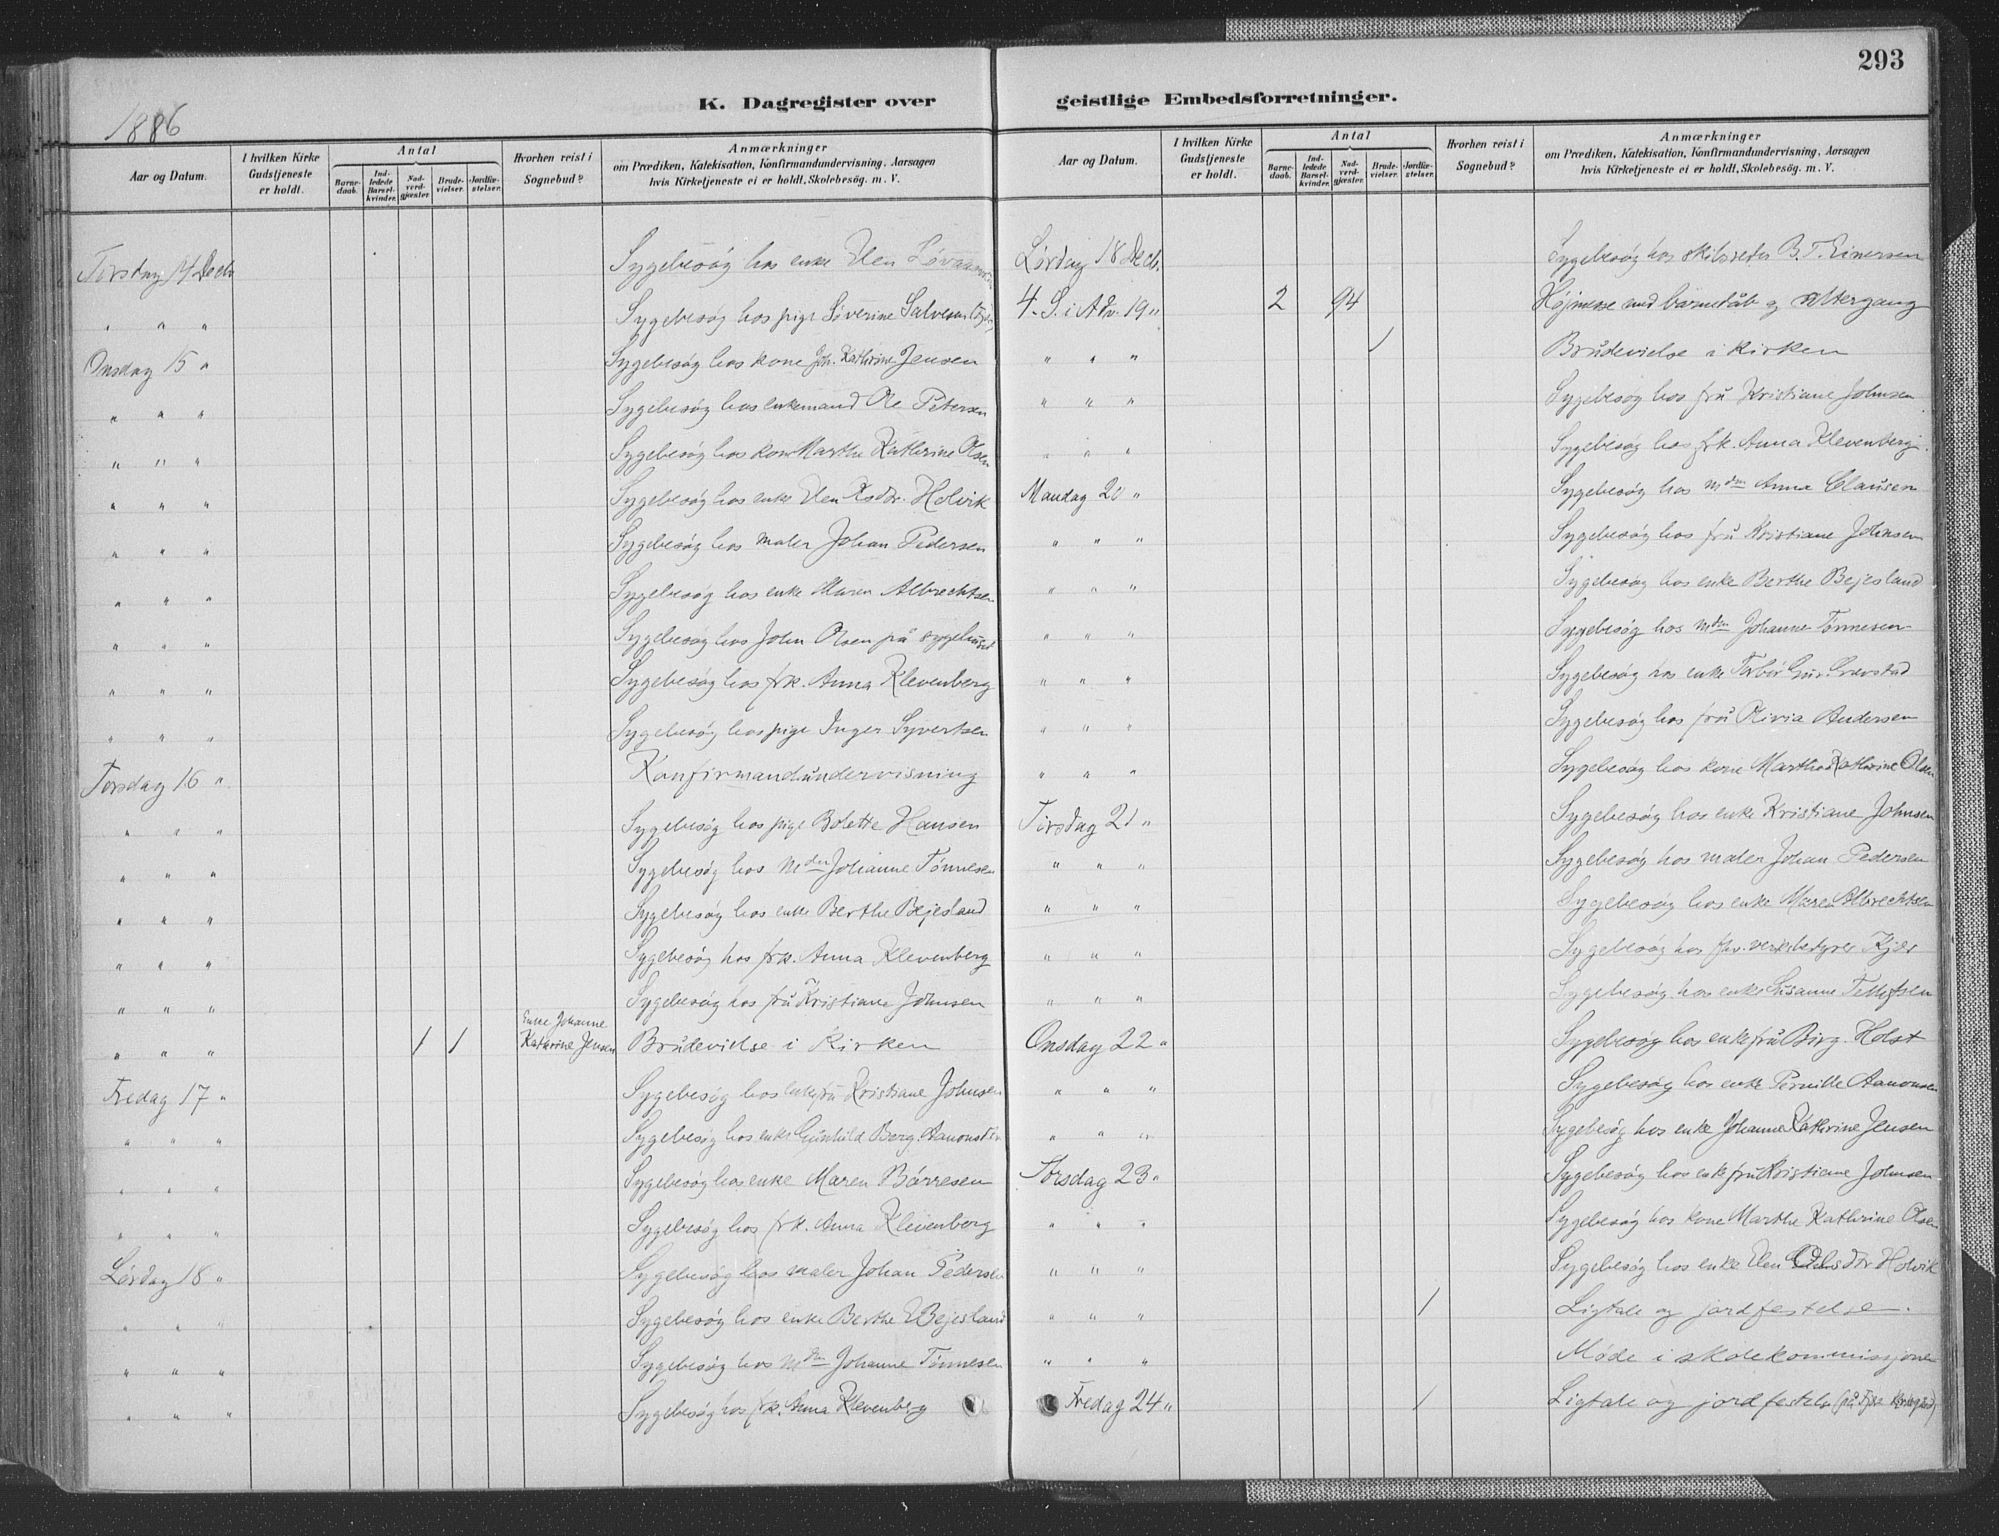 293
K. Dagregister over geistlige Embedsforretninger.
1886
Aar og Datum.
I hvilken Kirke Gudstjeneste er holdt.
Antal
Barnedaab.
Indledede Barselkvinder.
Nadverdgjæster.
Brudevielser.
Jordfæstelser.
Hvorhen reist i Sognebud?
Anmærkninger
om Prædiken, Katekisation, Konfirmandundervisning, Aarsagen
hvis Kirketjeneste ei er holdt, Skolebesög. m. V.
14 Decb Sygebesøg hos enke Elen
" " " Sygebesøg hos pige Severine Salvesen
Onsdag 15 " Sygebesøg hos kone Joh. Kathrine Jensen
" " " Sygebesøg hos enkemand Ole Petersen
" " " Sygebesøg hos kone Marthe Kathrine Olsen
" " " Sygebesøg hos enke Elen Holvik
" " " Sygebesøg hos maler Johan Pedersen
" " " Sygebesøg hos enke Maren Albrechtsen
" " " Sygebesøg hos John Olsen på sygehuset
" " " Sygebesøg hos frk. Anna Klevenberg
" " " Sygebesøg hos pige Inger Syvertsen
Torsdag 16 " Konfirmandundervisning
" " " Sygebesøg hos pige Bolette Hansen
" " " Sygebesøg hos Mdm Johanne Tønnesen
" " " Sygebesøg hos enke Berthe Bejesland
" " " Sygebesøg hos frk. Anna Klevenberg
" " " Sygebesøg hos fru Kristiane Johnsen
" " " 1 1 Enke Johanne Kathrine Jensen Brudevielse i Kirken
Fredag 17 " Sygebesøg hos enkefru Kristiane Johnsen
" " " Sygebesøg hos enke Gunhild Berg. Aanonsdtr
" " " Sygebesøg hos enke Maren Børresen
" " " Sygebesøg hos frk. Anna Klevenberg
Lørdag 18 " Sygebesøg hos maler Johan Pedersen
" " " Sygebesøg hos enke Berthe Bejesland
" " " Sygebesøg hos Mdm Johanne Tønnesen
" " " Sygebesøg hos frk. Anna Klevenberg
Aar og Datum.
I hvilken Kirke Gudstjeneste er holdt.
Antal
Barnedaab.
Indledede Barselkvinder.
Nadverdgjæster.
Brudevielser.
Jordfæstelser.
Hvorhen reist i Sognebud?
Anmærkninger
om Prædiken, Katekisation, Konfirmandundervisning, Aarsagen
hvis Kirketjeneste ei er holdt, Skolebesög. m. V.
Lørdag 18 Decb. Sygebesøg hos skibsreder B. T. Einersen
4. S. i Adv. 19 " 2 94 Højmesse med barnedåb og altergang
" " " 1 Brudevielse i kirken
" " " Sygebesøg hos fru Kristiane Johnsen
" " " Sygebesøg hos frk. Anna Klevenberg.
Mandag 20 " Sygebesøg hos mdm Anna Clausen
" " " Sygebesøg hos fru Kristiane Johnsen
" " " Sygebesøg hos enke Berthe Bejesland
" " " Sygebesøg hos mdm Johanne Tønnesen
" " " Sygebesøg hos enke
" " " Sygebesøg hos fru Olivia Andersen
" " " Sygebesøg hos kone Marthe Kathrine Olsen
Tirsdag 21 " Sygebesøg hos enke Kristiane Johnsen
" " " Sygebesøg hos maler Johan Pedersen
" " " Sygebesøg hos enke Maren Albrechtsen
" " " Sygebesøg hos fhv. verksbestyrer Kjær
" " " Sygebesøg hos enke Susanne Tellefsen
Onsdag 22 " Sygebesøg hos enkefru Birg. Holst
" " " Sygebesøg hos enke Pernille Aanonsen
" " " Sygebesøg hos enke Johanne Kathrine Jensen
Torsdag 23 " Sygebesøg hos enkefru Kristiane Johnsen
" " " Sygebesøg hos kone Marthe Kathrine Olsen
" " " Sygebesøg hos enke Elen Olsdtr Holvik
" " " 1 Ligtale og jordfestelse.
" " " Møde i skolekommissjonen
Fredag 24 " 1 Ligtale og jordfestelse